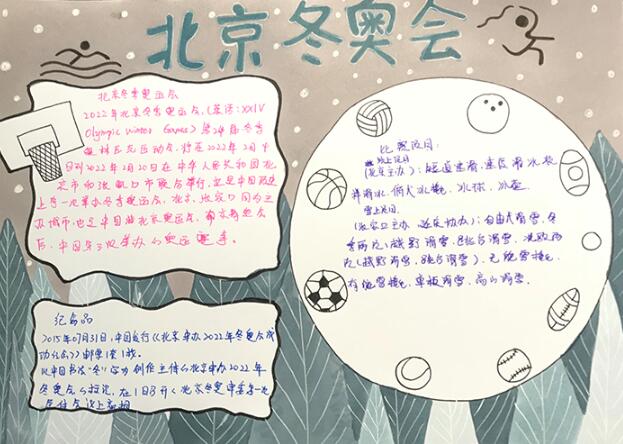 北京冬奥会
北京冬季奥运会
2022年北京冬季奥运会,(英语:XXIV
Olympic Winter Games)第24届冬季
奥林匹克运动会,将在2022年2月4
日到2022年2月20日在中华人民共和国北
京市和张家口市联合举行,这是中国历史
上第一次举办冬季奥运会,北京、张家口同为主
办城市,也是中国继北京奥运会,南京青奥会
后,中国第三次举办的奥运赛事。
纪念品
2015年07月31日,中国发行《北京申办2022年冬奥会成
功纪念》邮票1套1枚。
以中国书法“冬”字为创作主体的北京申办2022年
冬奥会的标识,在1日8月《北京冬奥申委第一次
比赛项目:
冰上项目
(北京主办):短道速滑,速度滑冰,花
样滑冰,俯式冰橇,冰球,冰壶
雪上项目
(张家口主办,延庆协办):自由式滑雪,冬
季两项(越野滑雪,跳台滑雪,
(越野滑雪,跳台滑雪),无舵雪橇,
有舵雪橇,单板滑雪,高山滑雪。